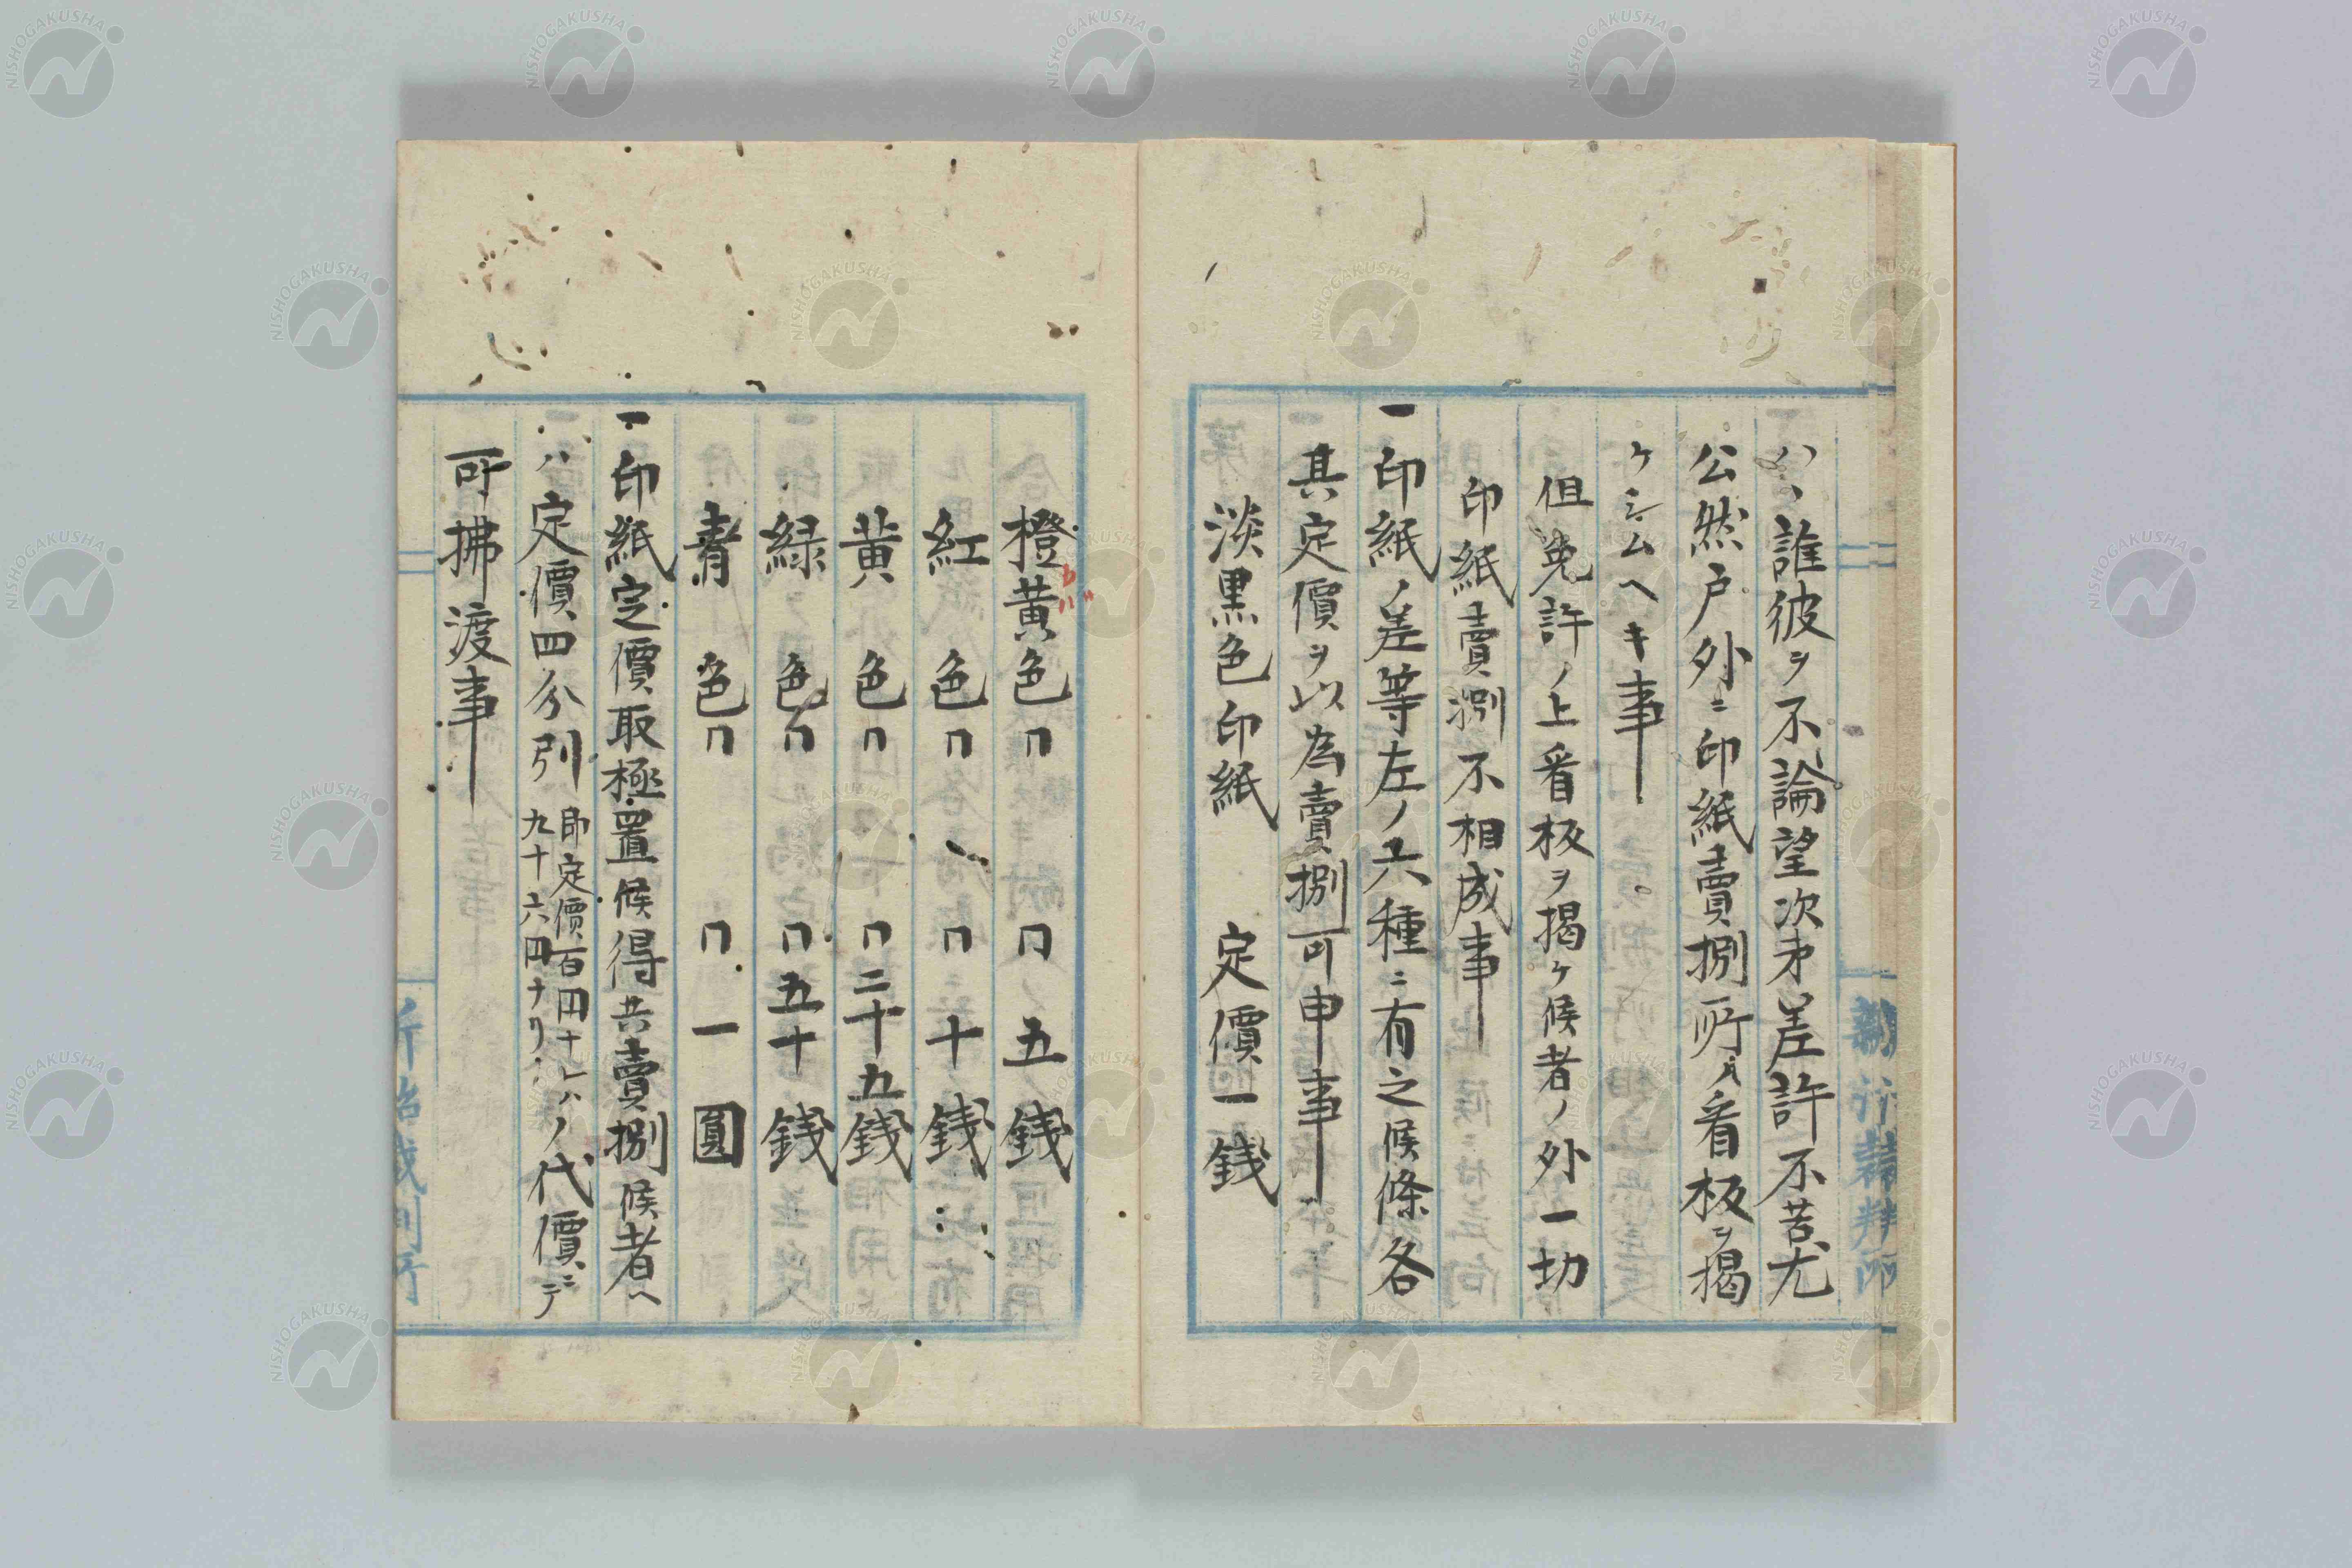 ハヽ誰彼ヲ不論望次第差許不苦尤
公然戸外ニ印紙賣捌所ノ看板ヲ掲
ケシムヘキ事
但免許ノ上看板ヲ掲ケ候者ノ外一切
印紙賣捌不相成事
一印紙ノ差等左ノ六種ニ有之候條各
其定價ヲ以為賣捌可申事
淡黒色印紙 定價一銭
橙黄色冂 冂五銭
紅色冂 冂十銭
黄色冂 冂二十五銭
緑色冂 冂五十銭
青色冂 冂一圓
一印紙定價取極置候得共賣捌候者ヘ
ハ定價四分引
即定價百円
九十六円ナリ
ノ代價ニテ
可拂渡事
NISHOGAKUSHA